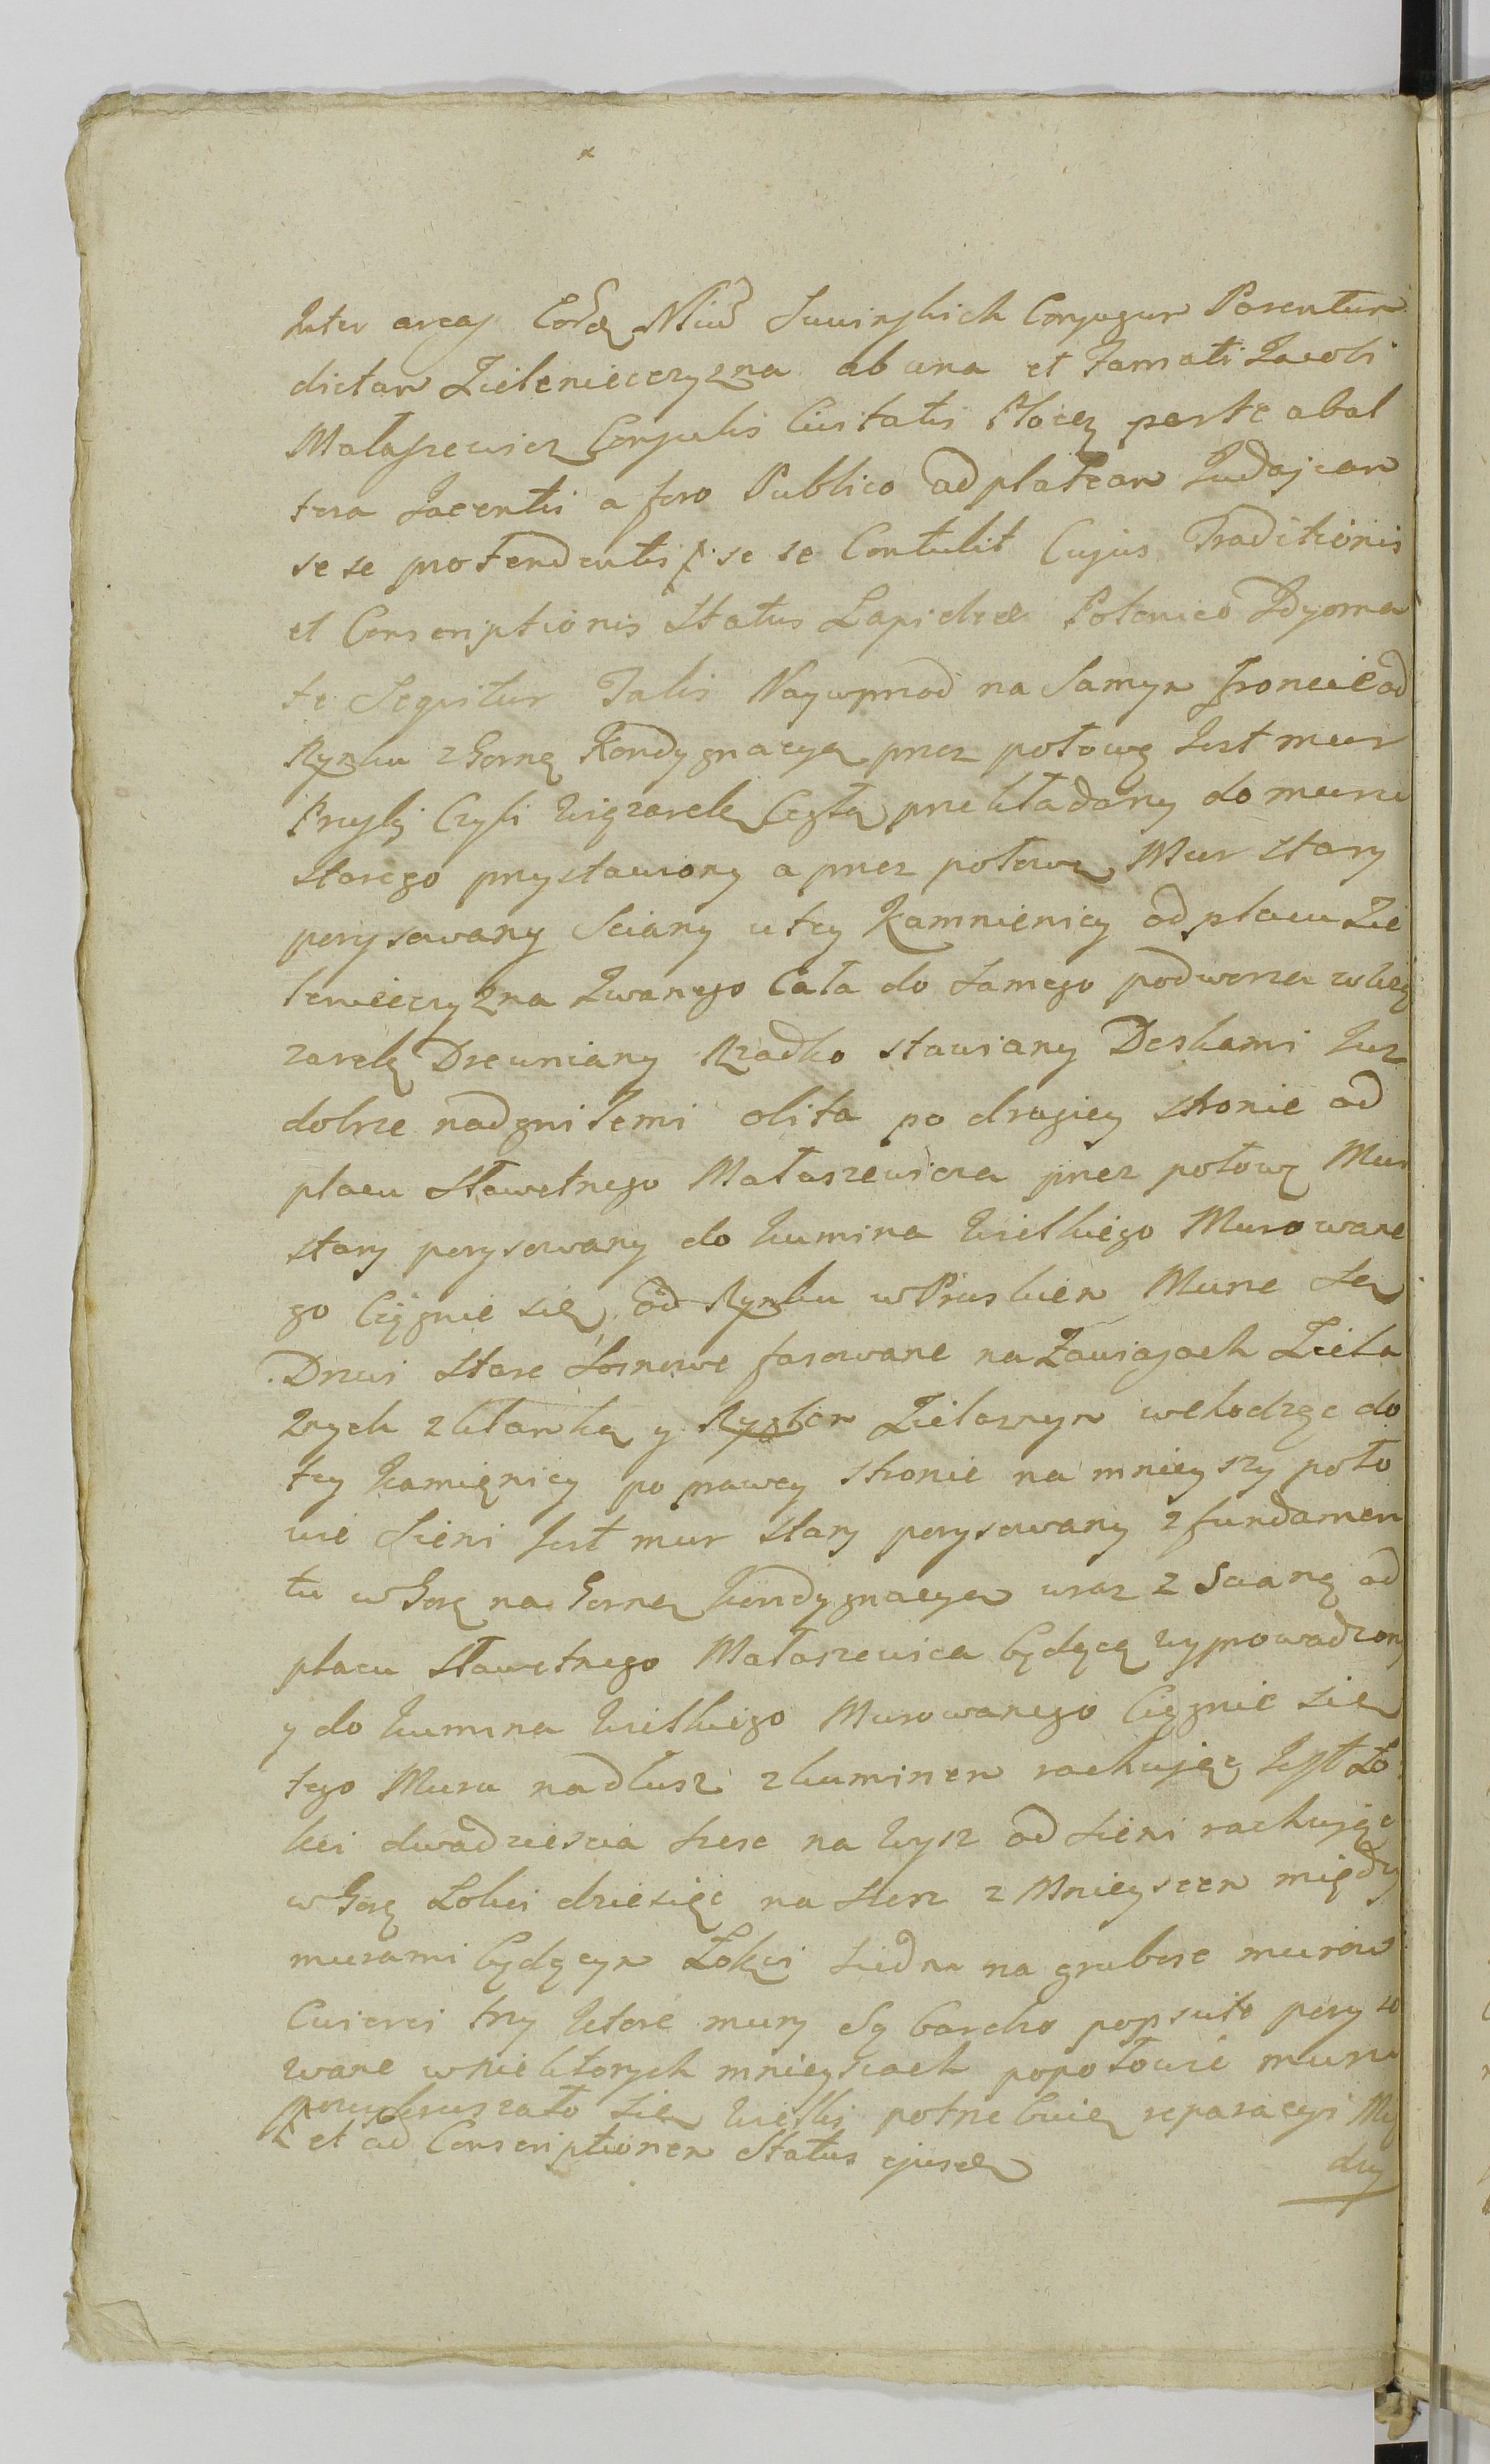 Inter areas Conjugum Parentum
dictam Zielenieczyzna ab una et Famati Jacobi
Małaszewicz Consulis Civitatis Płocen parte ab al
tera Jacentis a foro Publico ad plateam Judajcam
se se protendentis se se Contulit Cujus Traditionis
et Conscriptionis Status Lapideae Polonico Idyoma
te Sequitur Talis Naywprzod na Samym Froncie od
Rynku z Gorną Kondygnacyą przez połowę Jest mur
Pruski Czyli Wiązarek Cegłą przekładany do muru
starego przystawiony a przez połowę Mur stary
porysowany Sciany u tey Kamnienicy od placu Zie
lenieczyzna Zwanego Cała do samego podworza w Wią
zarek Drewniany Rzadko stawiany Deskami Juz
dobrze nadgniłemi obita po drugiey stronie od
placu Sławetnego Małaszewicza przez połowę Mur
stary porysowany do Kumina Wielkiego Murowane
go Ciągnie się, Od Rynku w Pruskim Murze są
Drzwi stare sosnowe fasowane na Zawiasach Zielaz
znych z klamką y Zielaznym wchodząc do
tey Kamięnicy po prawey stronie na mnieyszy poło
wie Sieni Jest mur stary porysowany z fundamen
tu w Gorę na Gorną Kondygnacyą wraz z Scianą od
placu Sławetnego Małaszewicza będącą wyprowadzony
y do Kumina Wielkiego Murowanego Ciągnie się
tego Muru nadłusz z kuminem rachując Jest Ło
kci dwadziescia szesc na Wysz od sieni rachując
w Gorę Łokci dziesięc na szesz z Mnieyscem między
murami będącym Łokci siedm na grubosc murow
Cwierci trzy Które mury Są bardzo popsute poryso
wane w niektorych mnieyscach popołowie muru
powykruszało się Wielki potrzebuią reparacyi Mię
et ad Conscriptionem Status ejusdem
dzy